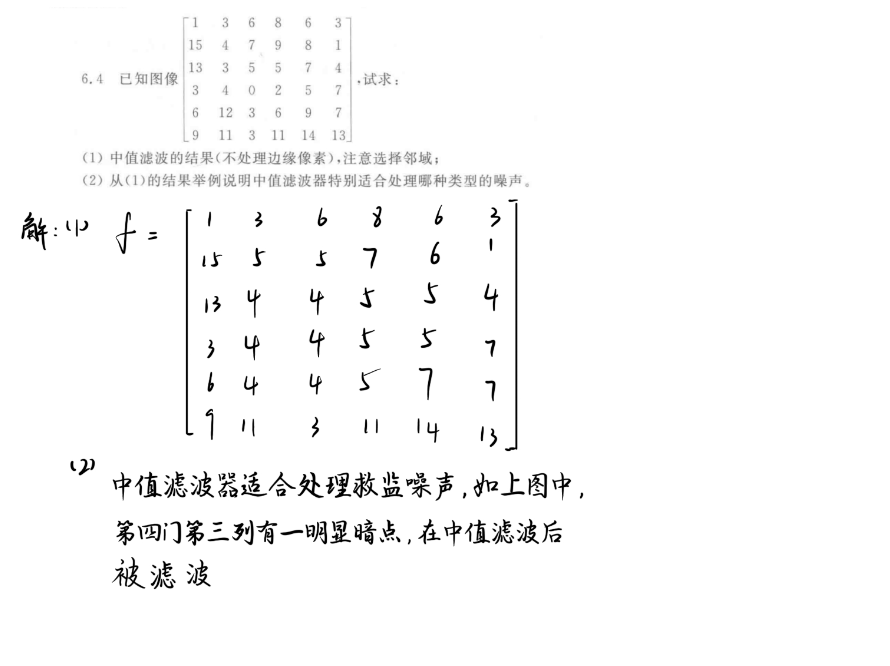 1 3 6 8 6 3
15 4 7 9 8 1
13 3 5 5 7 4
6.4 已知图像 ,试求:
3 4 0 2 5 7
6 12 3 6 9 7
9 11 3 11 14 13
(1) 中值滤波的结果(不处理边缘像素),注意选择邻域;
(2) 从(1)的结果举例说明中值滤波器特别适合处理哪种类型的噪声。
解:(1) f = 1 3 6 8 6 3
15 5 5 7 6 1
13 4 4 5 5 4
3 4 4 5 5 7
6 4 4 5 7 7
9 11 3 11 14 13
(2)
中值滤波器适合处理救监噪声,如上图中,
第四门第三列有一明显暗点,在中值滤波后
被滤波